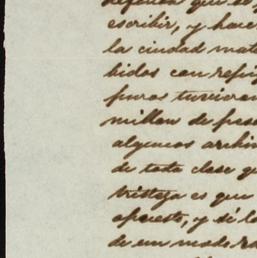 escribir, y hace
la ciudad mat
bidos con refri
puros tuvieron
millon de pes
algunos archi
de toda clase q
tristeza es que
apuesto, y si lo
de un modo ra